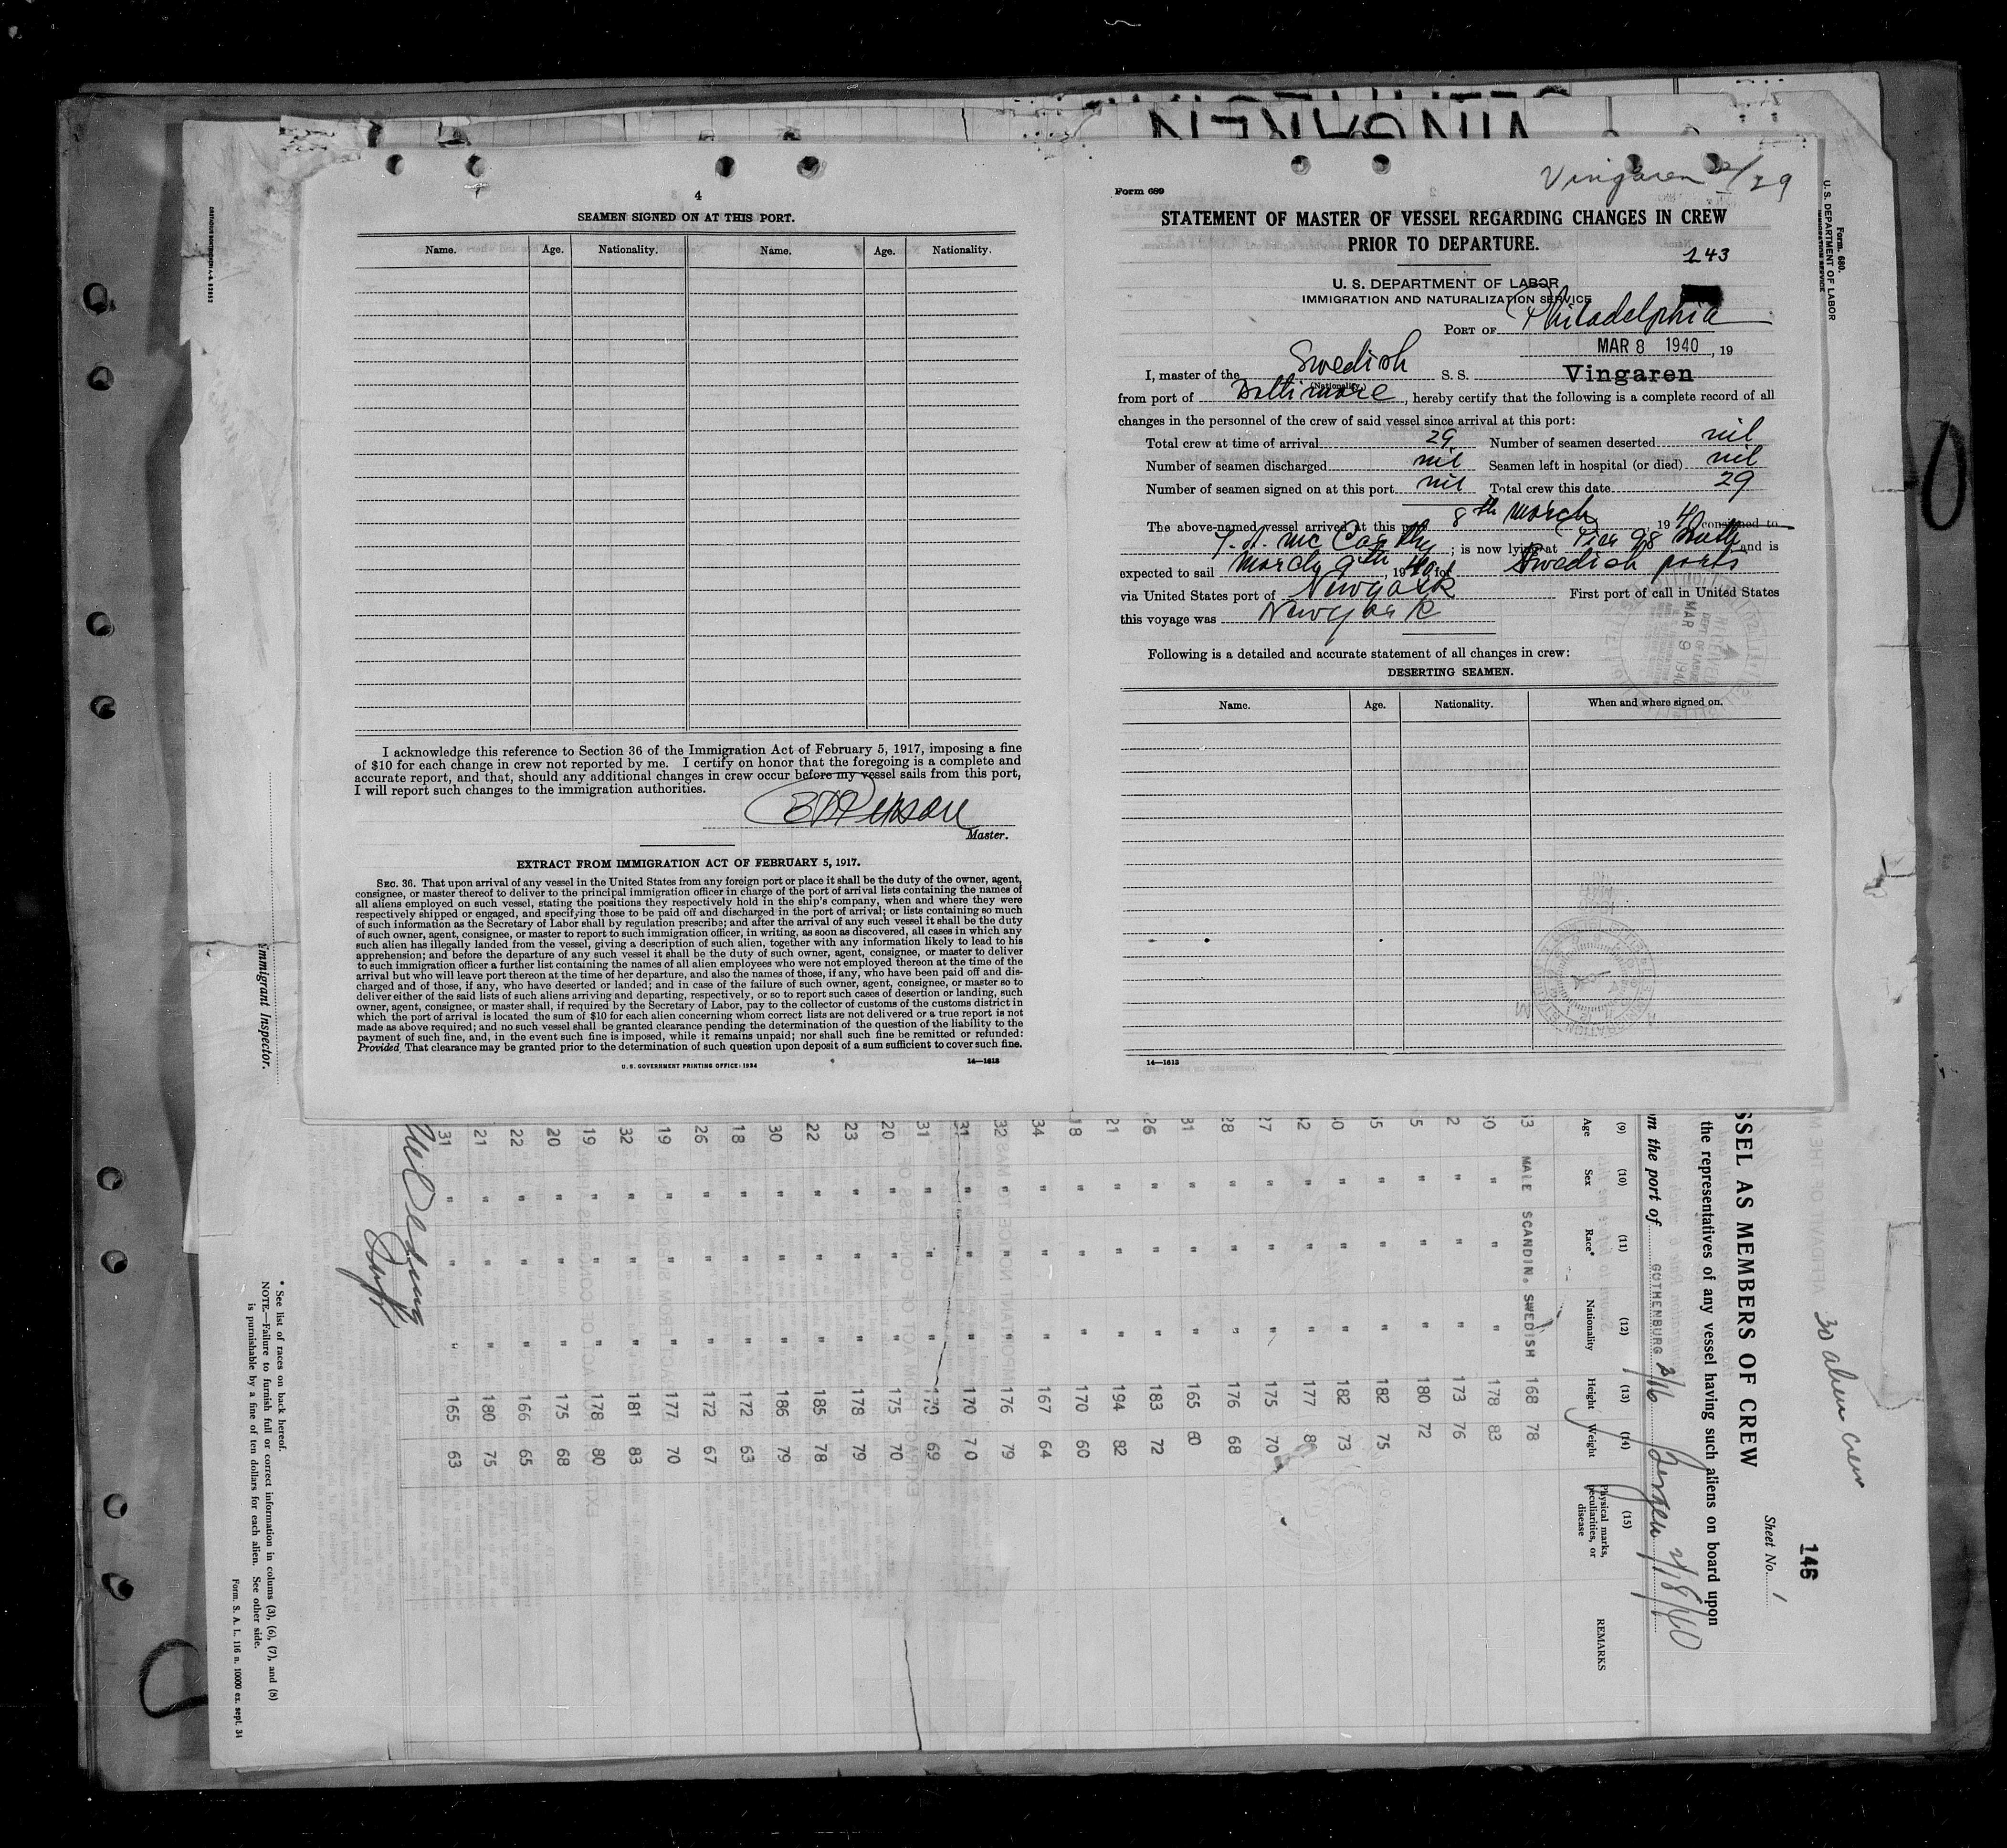 4
SEAMEN SIGNED ON AT THIS PORT.
Name. Age. Nationality. Name. Age. Nationality.
I acknowledge this reference to Section 36 of the Immigration Act of February 5, 1917, imposing a fine
of $10 for each change in crew not reported by me. I certify on honor that the foregoing is a complete and
accurate report, and that, should any additional changes in crew occur before my vessel sails from this port,
I will report such changes to the immigration authorities.
Master.
EXTRACT FROM IMMIGRATION ACT OF FEBRUARY 5, 1917.
SEC. 36. That upon arrival of any vessel in the United States from any foreign port or place it shall be the duty of the owner, agent,
consignee, or master thereof to deliver to the principal immigration officer in charge of the port of arrival lists containing the names of
all aliens employed on such vessel, stating the positions they respectively hold in the ship's company, when and where they were
respectively shipped or engaged, and specifying those to be paid off and discharged in the port of arrival; or lists containing so much
of such information as the Secretary of Labor shall by regulation prescribe; and after the arrival of any such vessel it shall be the duty
of such owner, agent, consignee, or master to report to such immigration officer, in writing, as soon as discovered, all cases in which any
such alien has illegally landed from the vessel, giving a description of such alien, together with any information likely to lead to his
apprehension; and before the departure of any such vessel it shall be the duty of such owner, agent, consignee, or master to deliver
to such immigration officer a further list containing the names of all alien employees who were not employed thereon at the time of the
arrival but who will leave port thereon at the time of her departure, and also the names of those, if any, who have been paid off and dis-
charged and of those, if any, who have deserted or landed; and in case of the failure of such owner, agent, consignee, or master so to
deliver either of the said lists of such aliens arriving and departing, respectively, or so to report such cases of desertion or landing, such
owner, agent, consignee, or master shall, if required by the Secretary of Labor, pay to the collector of customs of the customs district in
which the port of arrival is located the sum of $10 for each alien concerning whom correct lists are not delivered or a true report is not
made as above required; and no such vessel shall be granted clearance pending the determination of the question of the liability to the
payment of such fine, and, in the event such fine is imposed, while it remains unpaid; nor shall such fine be remitted or refunded:
Provided, That clearance may be granted prior to the determination of such question upon deposit of a sum sufficient to cover such fine.
U. S. GOVERNMENT PRINTING OFFICE: 1934 14—1613
Form 689
Vingaren /29
STATEMENT OF MASTER OF VESSEL REGARDING CHANGES IN CREW
PRIOR TO DEPARTURE.
143
U. S. DEPARTMENT OF LABOR
IMMIGRATION AND NATURALIZATION SERVICE
PORT OF Philadelphia
MAR 8 1940, 19
I, master of the Swedish S. S. Vingaren
(Nationality.)
from port of Baltimore, hereby certify that the following is a complete record of all
changes in the personnel of the crew of said vessel since arrival at this port:
Total crew at time of arrival 29 Number of seamen deserted nil
Number of seamen discharged nil Seamen left in hospital (or died) nil
Number of seamen signed on at this port nil Total crew this date 29
The above-named vessel arrived at this port 8th March, 1940 consigned to
Mc Carthy; is now lying at Pier 98 South and is
expected to sail March 9th, 1940, for Swedish ports
via United States port of Newyork First port of call in United States
this voyage was Newyork
Following is a detailed and accurate statement of all changes in crew:
DESERTING SEAMEN.
Name. Age. Nationality. When and where signed on.
14—1613
Form. 680.
U. S. DEPARTMENT OF LABOR
MAR 9 1940
Immigrant Inspector.
30 alien crew
146
Sheet No. 1
SSEL AS MEMBERS OF CREW
the representatives of any vessel having such aliens on board upon
m the port of GOTHENBURG 2/16 Bergen 2/18/40
(9) (10) (11) (12) (13) (14) (15)
Age Sex Race* Nationality Height Weight Physical marks, peculiarities, or disease REMARKS
53 MALE SCANDIN. SWEDISH 168 78
" " " 178 83
" " " 173 76
" " " 180 72
" " " 182 75
" " " 182 73
" " " 177 80
27 " " " 175 70
28 " " " 176 68
31 " " " 165 60
26 " " " 183 72
21 " " " 194 82
18 " " " 170 60
34 " " " 167 64
32 " " " 176 79
31 " " " 170 70
31 " " " 170 69
20 " " " 175 70
23 " " " 178 79
22 " " " 185 78
30 " " " 186 79
18 " " " 172 63
26 " " " 172 67
19 " " " 177 70
32 " " " 181 83
19 " " " 178 80
20 " " " 175 68
22 " " " 166 65
21 " " " 180 75
31 " " " 165 63
* See list of races on back hereof.
NOTE.—Failure to furnish full or correct information in colums (3), (6), (7), and (8)
is punishable by a fine of ten dollars for each alien. See other side.
Form. S. A. L. 116 n. 10000 ex. sept. 34